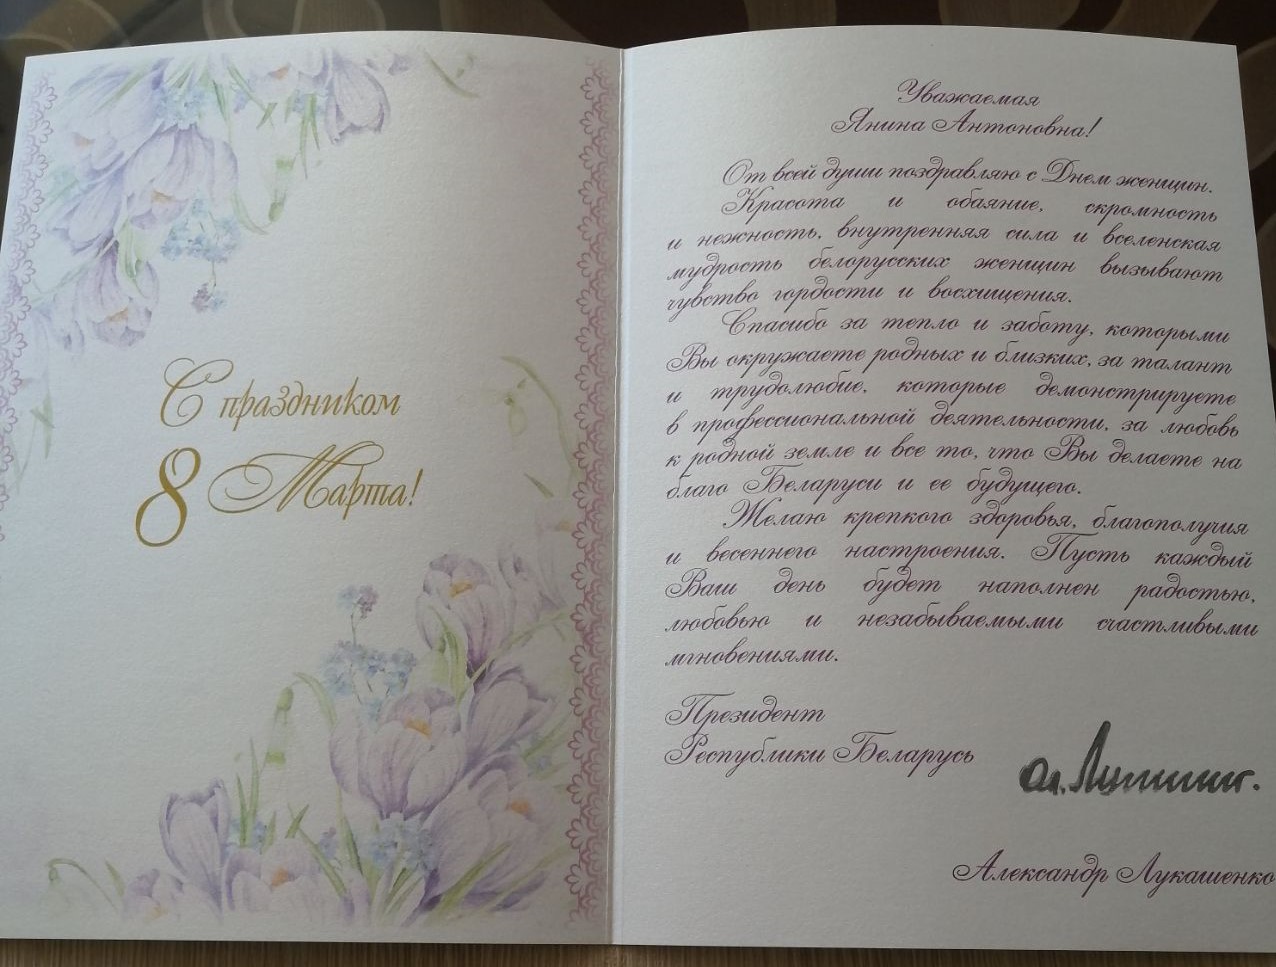 С праздником
8 Марта!
Уважаемая
Янина Антоновна!
От всей души поздравляю с Днем женщин.
Красота и обаяние, скромность
и нежность, внутренняя сила и вселенская
мудрость белорусских женщин вызывают
чувство гордости и восхищения.
Спасибо за тепло и заботу, которыми
Вы окружаете родных и близких, за талант
и трудолюбие, которые демонстрируете
в профессиональной деятельности, за любовь
к родной земле и все то, что Вы делаете на
благо Беларуси и ее будущего.
Желаю крепкого здоровья, благополучия
и весеннего настроения. Пусть каждый
Ваш день будет наполнен радостью,
любовью и незабываемыми счастливыми
мгновениями.
Президент
Республики Беларусь
Александр Лукашенко